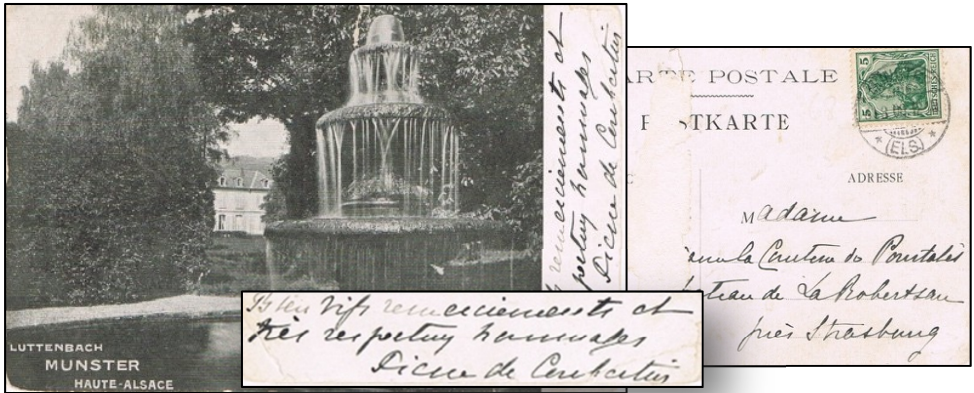 LUTTENBACH
MUNSTER
HAUTE-ALSACE
remerciements et
respectueux hommages
Pierre de Coubertin
Bien vifs remerciements et
très respectueux hommages
Pierre de Coubertin
CARTE POSTALE
POSTKARTE
5 5
DEUTSCHES REICH
(ELS)
ADRESSE
Madame
Madame la Comtesse de Pourtalès
château de La Robertsau
près Strasbourg